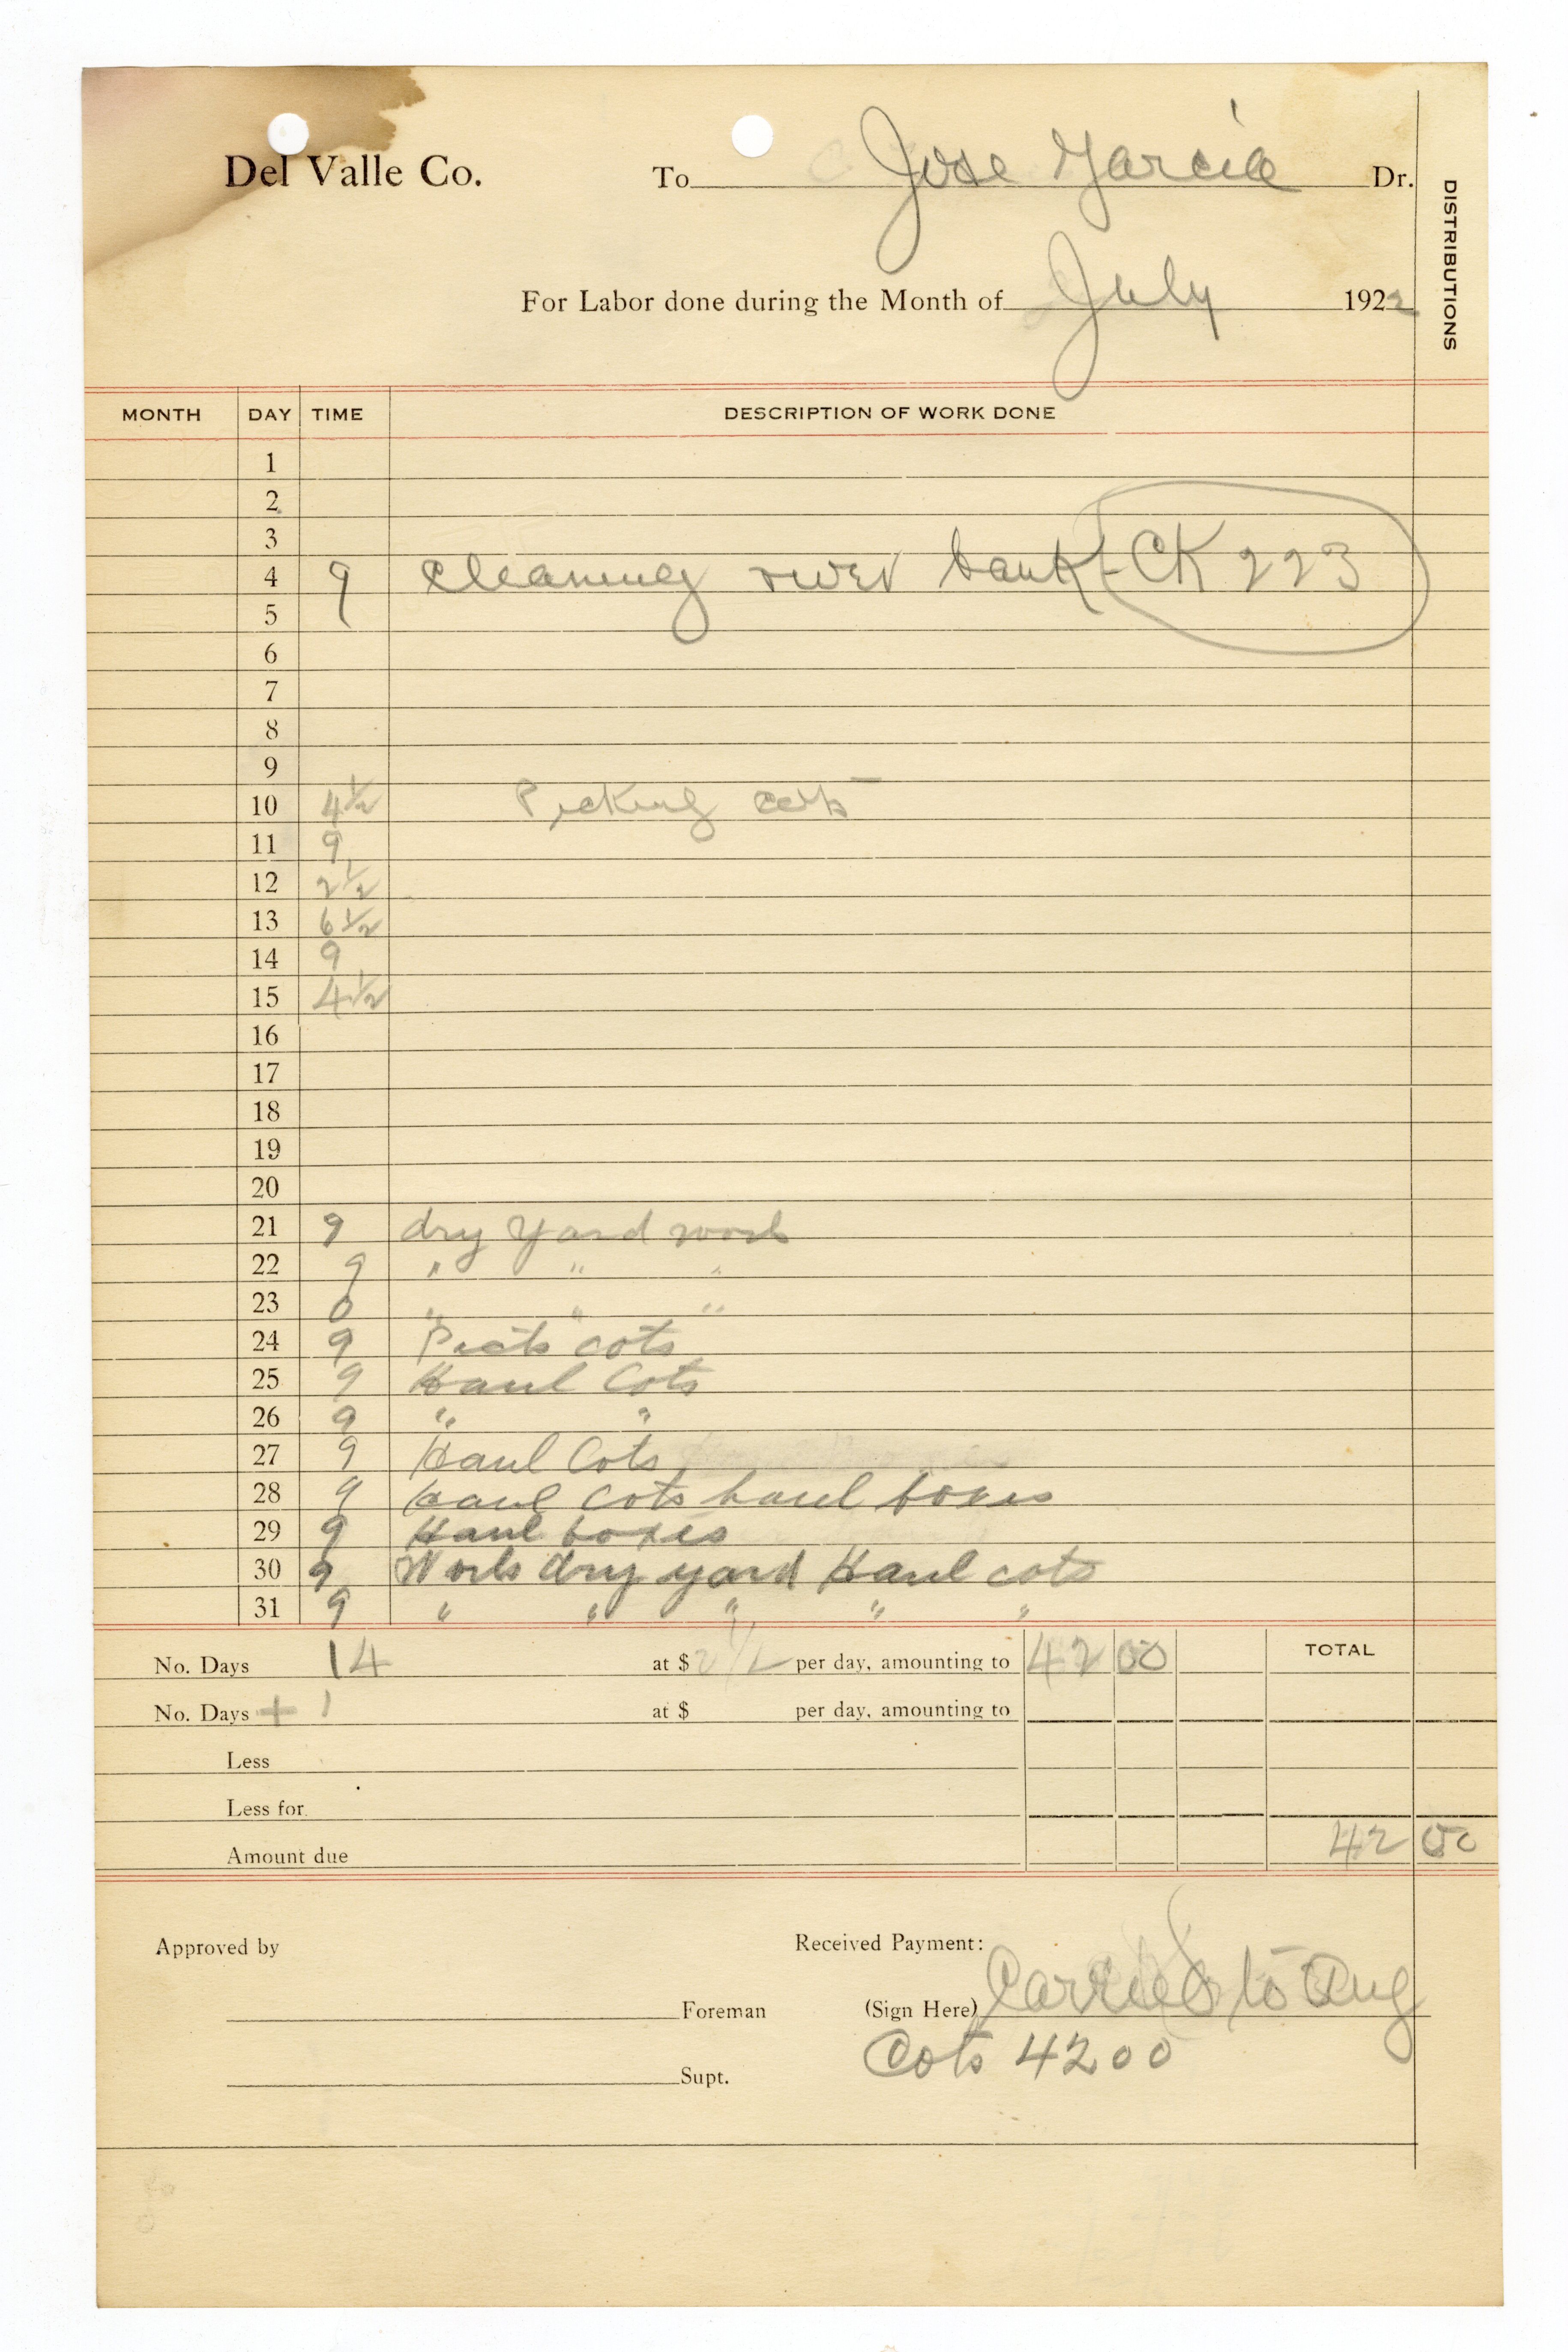 Del Valle Co. To Jose Garcia Dr.
DISTRIBUTIONS
For Labor done during the Month of July 1922
MONTH DAY TIME DESCRIPTION OF WORK DONE
1
2
3
4 9 cleaning river bank - CK 223
5
6
7
8
9
10 4 1/2 Picking cots
11 9
12 2 1/2
13 6 1/2
14 9
15 4 1/2
16
17
18
19
20
21 9 dry yard work
22 9 " " "
23 0 " " "
24 9 cots
25 9 Haul Cots
26 9 " "
27 9 Haul Cots
28 9 Haul Cots haul boxes
29 9 Haul boxes
30 9 Work dry yard Haul cots
31 9 " " " " "
No. Days 14 at $ per day, amounting to 42 00 TOTAL
No. Days + 1 at $ per day, amounting to
Less
Less for
Amount due 42 00
Approved by Received Payment:
Foreman (Sign Here) Carried to Aug
Cots 4200
Supt.